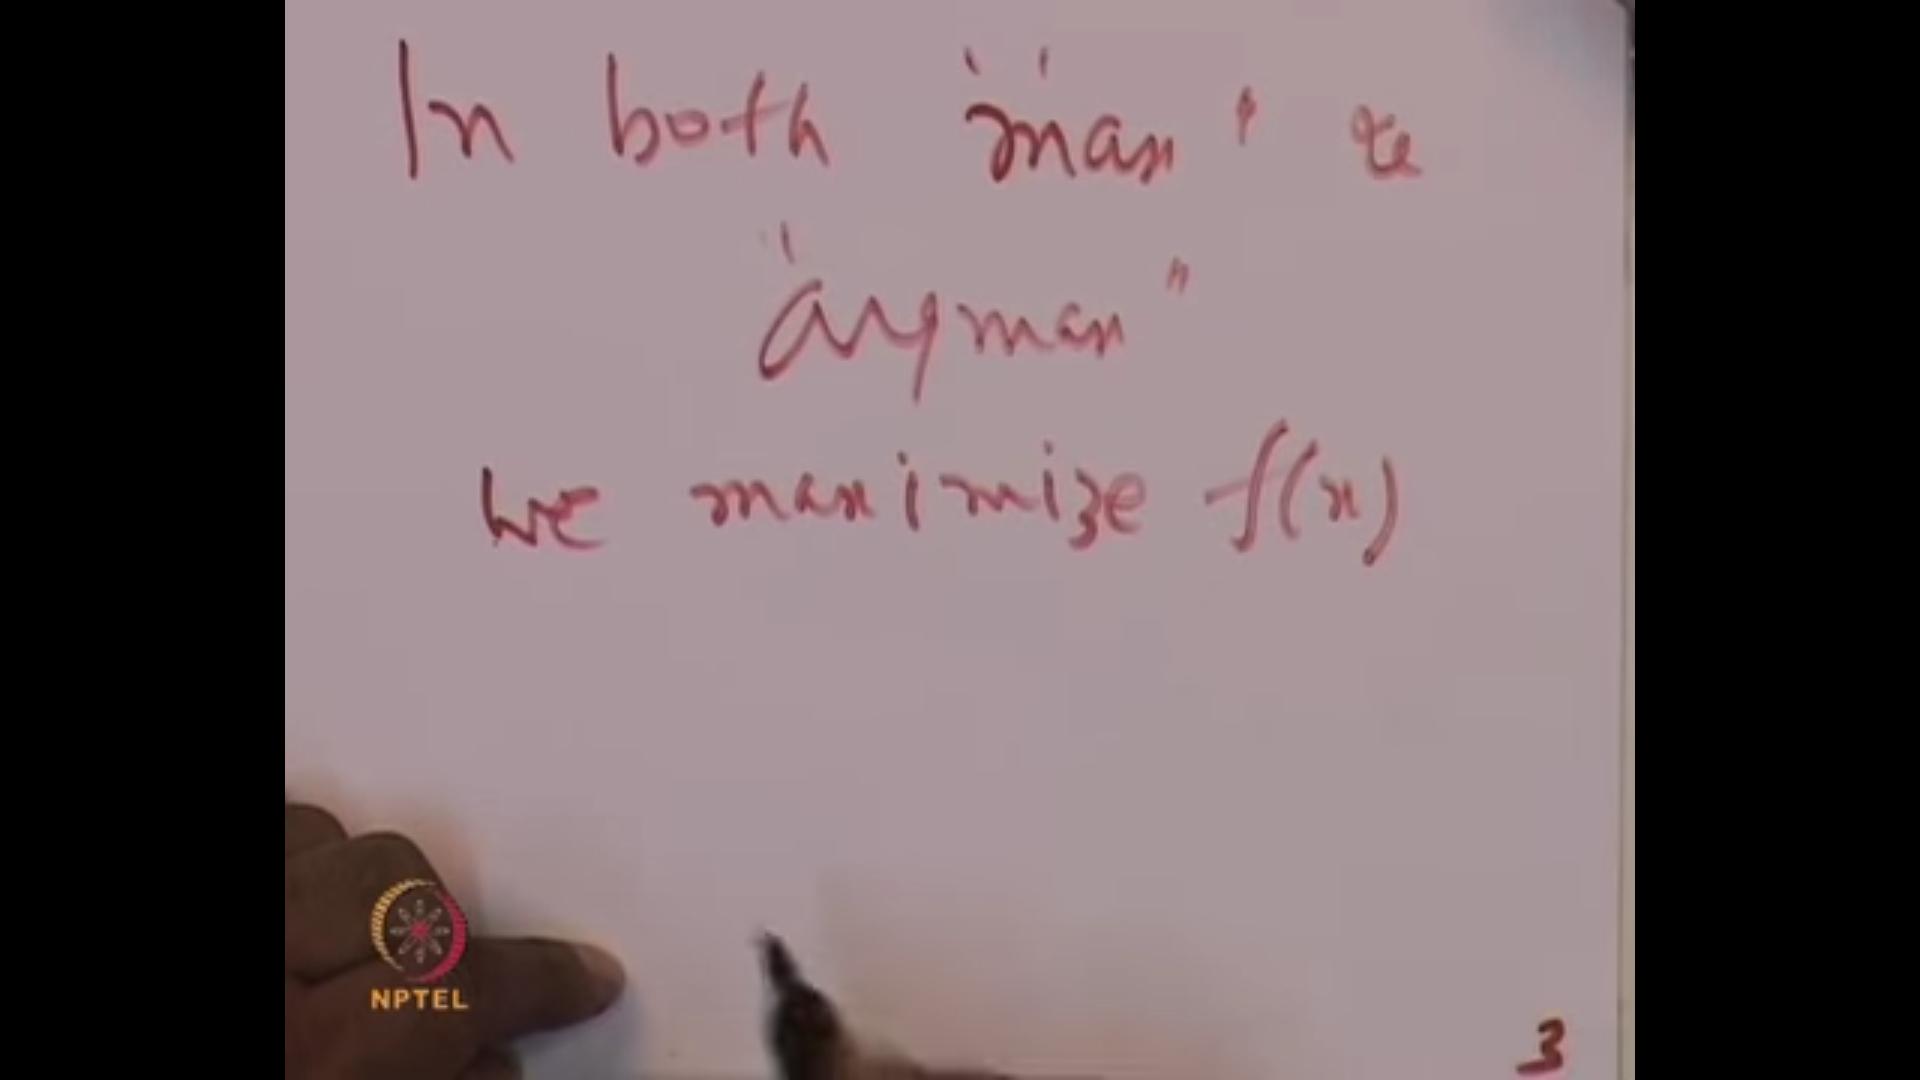 In both "max" &
"argmax"
we maximize f(x)
NPTEL
3